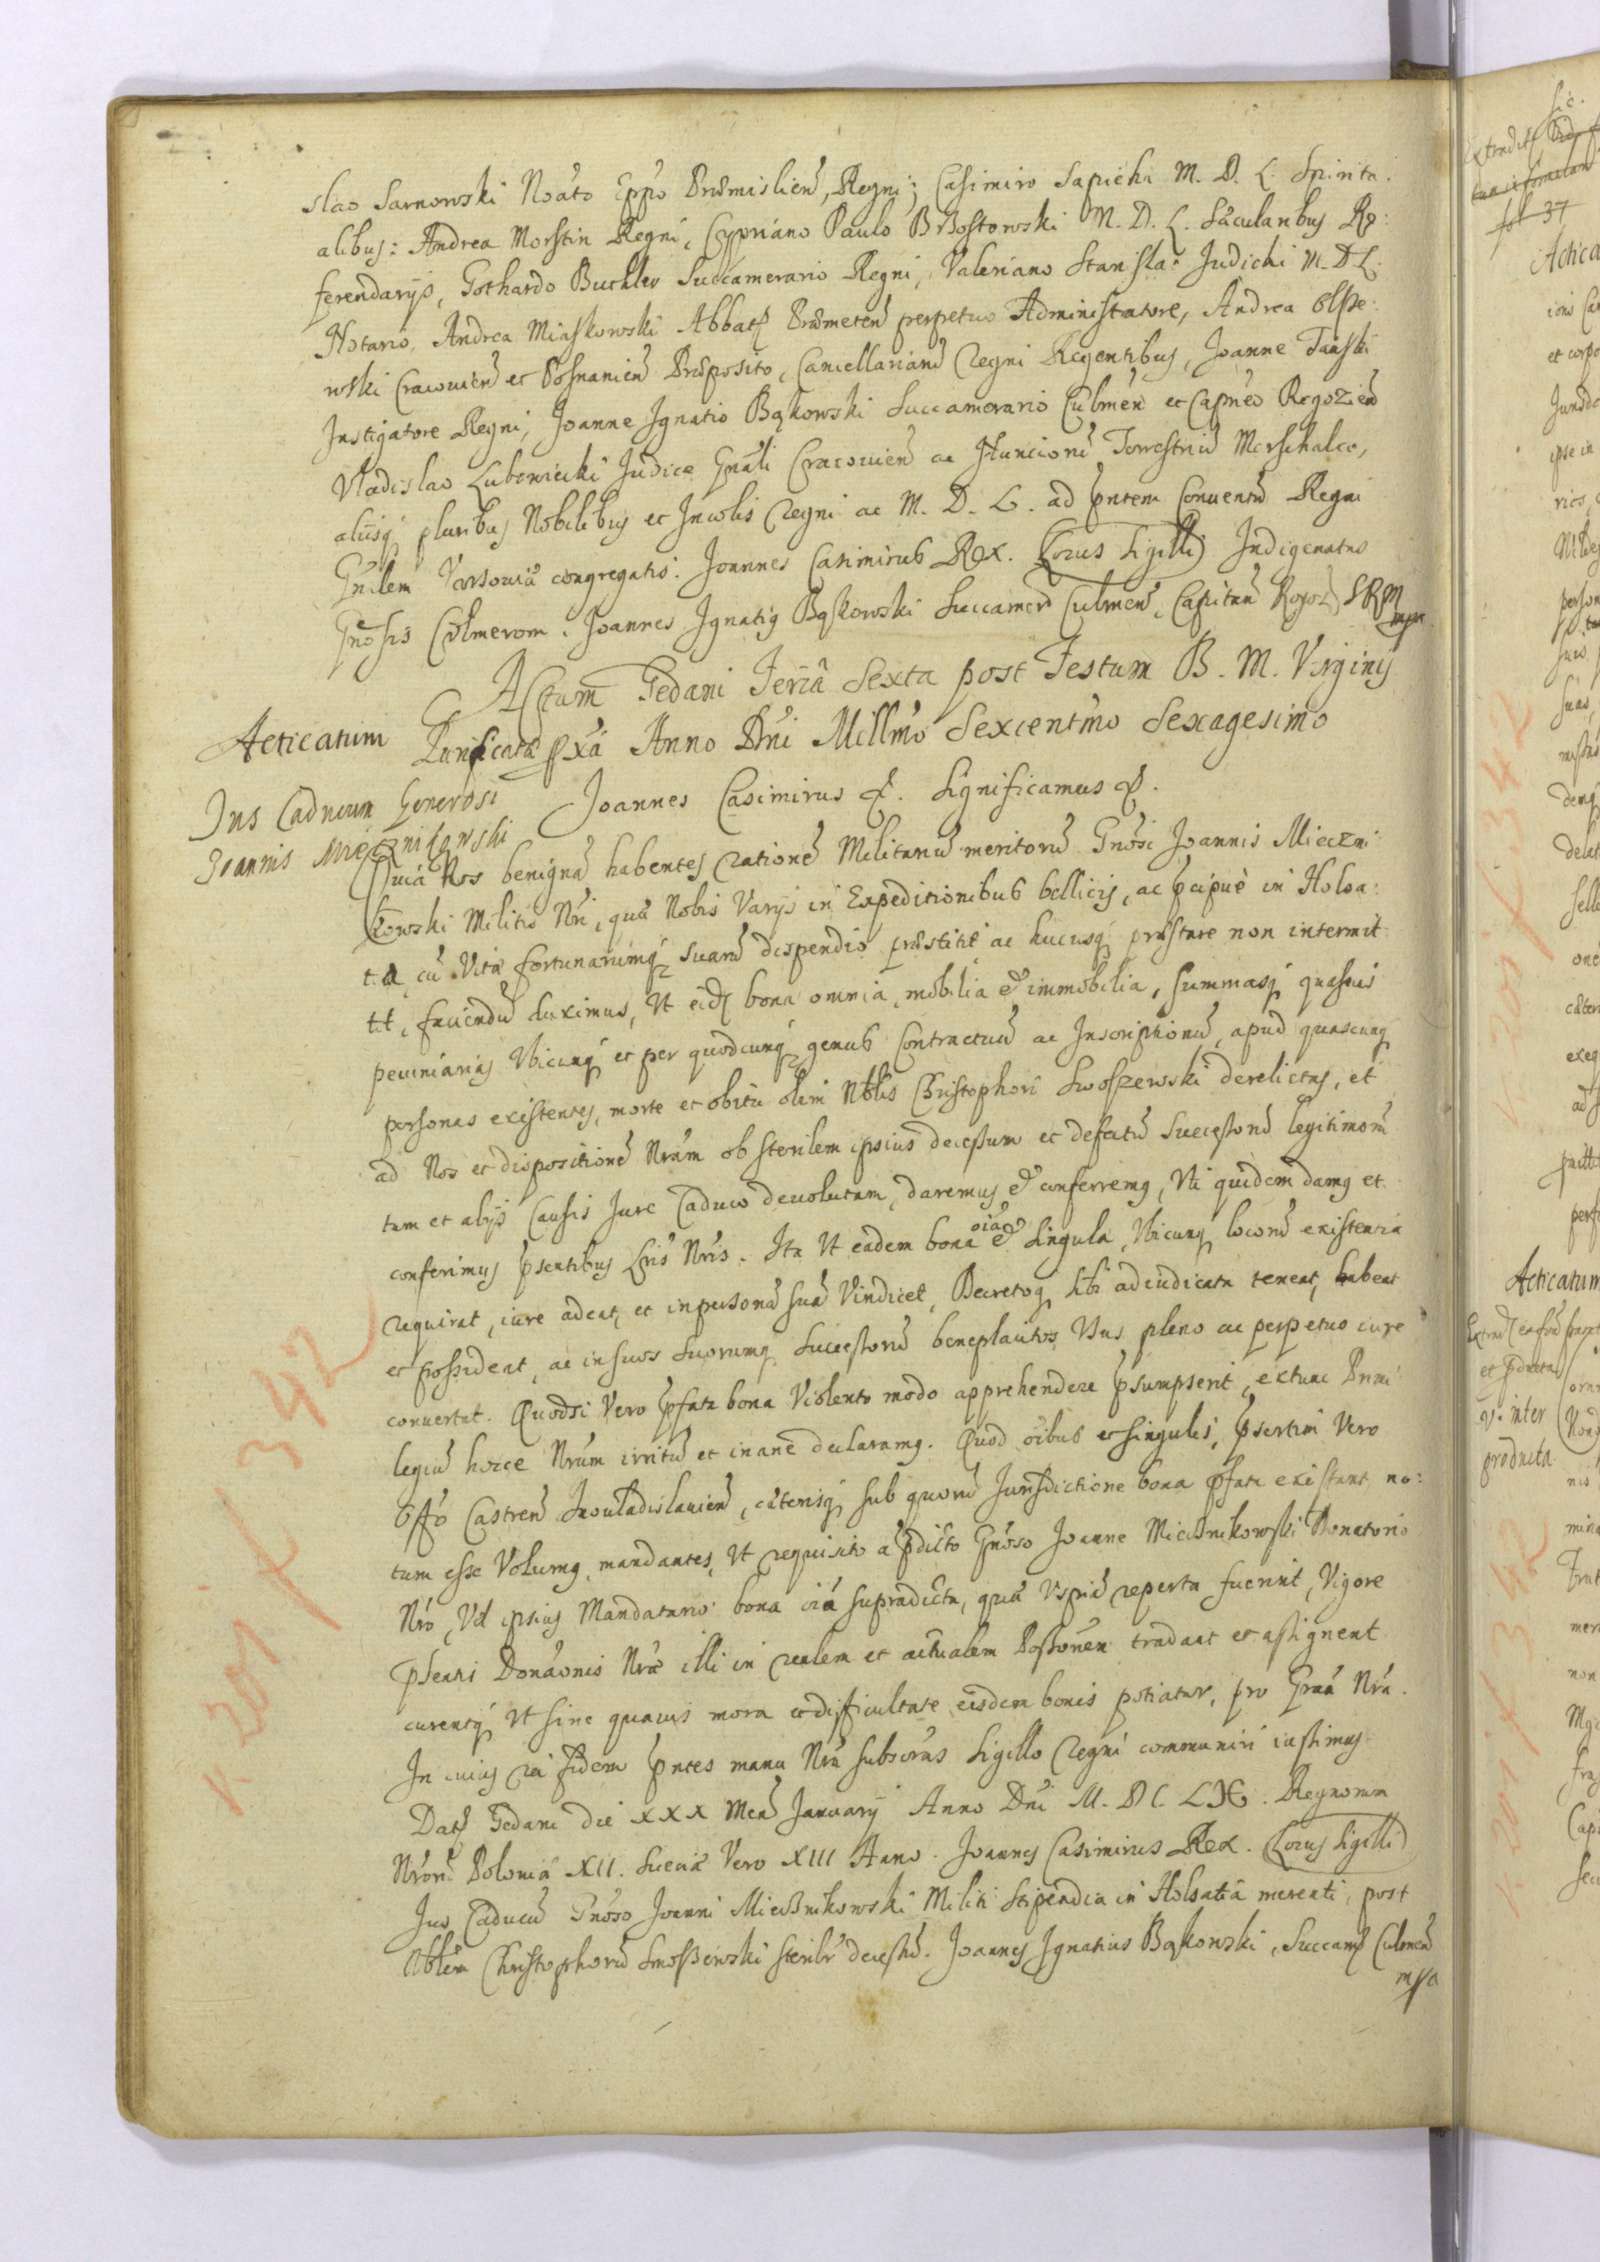 slao Sarnowski Noãto Eppo Præmislien, Regni; Casimiro Sapieha M. D. L. Spiritu:
alibus: Andrea Morstin Regni, Cypriano Paulo Brzostowski M. D. L. Sæcularibus Re:
ferendarijs, Gothardo Buthler Succamerario Regni, Valeriano Stanislao Judicki M. D. L.
Notario, Andrea Miaskowski Abbat Præmeten perpetuo Administratore, Andrea Olsze:
wski Cracovien et Posnanien Præposito, Cancellariarũ Regni Regentibus, Joanne Tański
Instigatore Regni, Joanne Ignatio Bąkowski Succamerario Culmen et Capneo
Vladislao Lubowiecki Judice Gnãli Cracovien ac Nuncioru Terrestriũ Marschalco,
alijsq pluribus Nobilibus et Incolis Regni ac M. D. L. ad pntem Conventũ Regni
Gnãlem Varsoviæ congregatis. Joannes Casimirus Rex. (Locus Sigilli) Indigenatus
Gnosis . Joannes Ignatiq Bąkowski Succamer Culmen, Capitan SRM
mpa
Actum Gedani Feriâ Sexta post Festum B. M. Virginis
Acticatum
Purificatæ pxã Anno Dñi Millmo Sexcentmo Sexagesimo
Jus Caducum Generosi
Joannis Mięcznikowski
Joannes Casimirus &. Significamus &.
Quia Nos benignã habentes rationẽ Militariũ meritorũ Gnosi Joannis Mieczni:
kowski Militis Nri, quæ Nobis Varijs in Expeditionibus bellicis, ac pcipuè in Holsa:
tia, cũ Vitæ fortunarumq suarũ dispendio præstitit ac hucusq præstare non intermit
tit, faciendũ duximus, Vt eid bona omnia, mobilia & immobilia, summasq quasvis
pecuniarias Vbicunq et per quodcunq genus Contractuũ ac Inscriptionũ, apud quascunq
personas existentes, morte et obitu olim Nblis Christophori Swoszewski derelictas, et
ad Nos et dispositionẽ Nrãm ob sterilem ipsius decessum et defectũ Successorũ legitimorũ
tum et alijs Causis Jure Caduco devolutam, daremus & conferremq, Vti quidem damq et
conferimus psentibus Lris Nris. Ita Vt eadem bona oia & singula, Vbicunq locorũ existentia
requirat, iure adeat, et in personã suã Vindicet, Decretoq sibi adiudicata teneat, habeat
et possideat, ac in suos Suorumq Successorũ beneplacitos Vsus pleno ac perpetuo iure
convertat. Quodsi Vero pfata bona Violento modo apprehendere psumpserit, extunc Privi
legiũ hocce Nrũm irritũ et inane declaramq. Quod oibus et singulis, psertim Vero
Offo Castren Inowladislavien, cæterisq sub quorũ Jurisdictione bona pfata existant, no:
tum esse Volumq mandantes, Vt requisito a pdicto Gnoso Joanne Mieznikowski Donatorio
Nro, Vel ipsius Mandatario bona oiã supradicta, quæ Vspiã reperta fuerint, Vigore
psentis Donãonis Nræ illi in realem et actualem Possonem tradant et assignent
curentq Vt sine quavis mora et difficultate eisdem bonis potiatur, pro Grãa Nra.
In cuius rei fidem pntes manu Nrã subscras Sigillo Regni communiri iussimus
Dat Gedani die XXX Mens Januarij Anno Dni M. DC. LX. Regnorum
Nrorũ Poloniæ XII. Sueciæ Vero XIII Anno. Joannes Casimirus Rex. (Locus Sigilli)
Jus Caducũ Gnoso Joanni Mieznikowski Militi Stipendia in Holsatia merenti, post
Nblẽm Christophorũ Swoszewski decessũ. Joannes Ignatius Bąkowski, Succam Culmen
mpa
sic.
fol 37
Acticatum
v. inter
producta